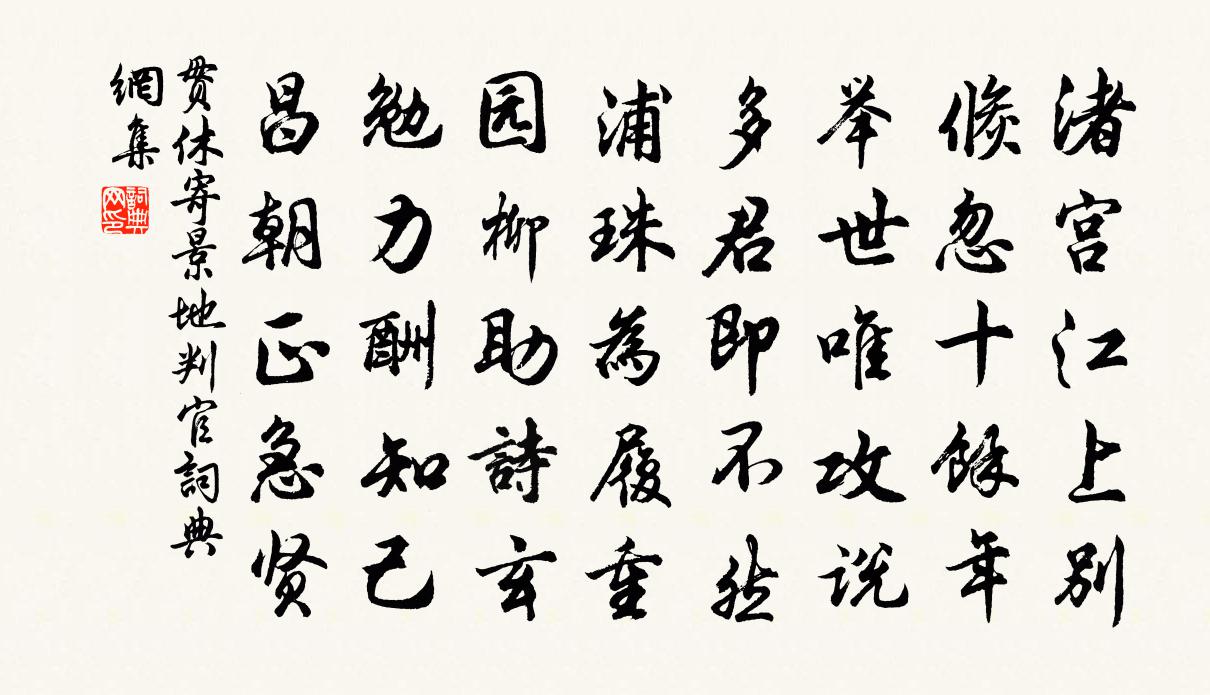 渚宫江上别
倏忽十餘年
举世唯攻说
多君即不然
浦珠為履重
园柳助詩玄
勉力酬知己
昌朝正急贤
贯休寄景地判官詞典
網集
詞典网印